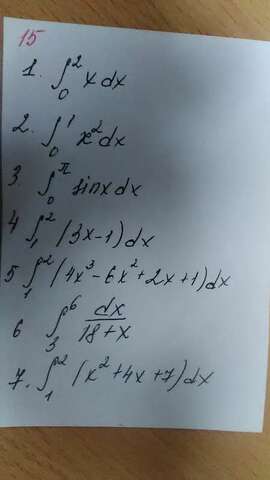 15
1. ∫₀² x dx
2. ∫₀¹ x² dx
3. ∫₀^π sinx dx
4 ∫₁² (3x-1) dx
5 ∫₁² (4x³-6x²+2x+1) dx
6 ∫₃⁶ dx/(18+x)
7. ∫₁² (x²+4x+7) dx